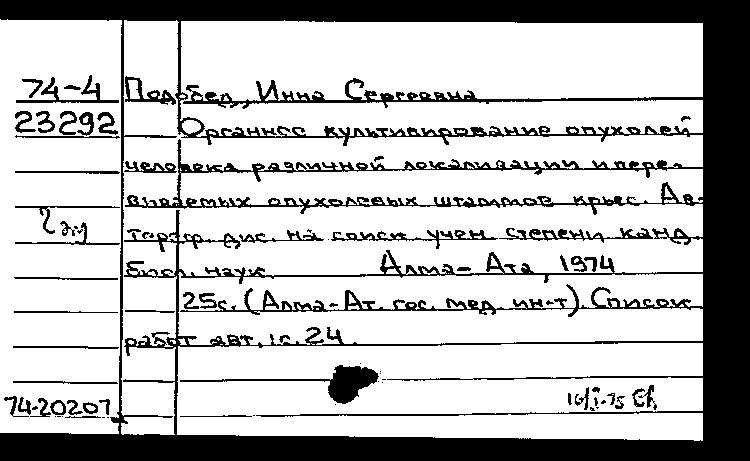 74-4 Подобед, Инна Сергеевна.
23292 Органное культивирование опухолей
человека различной локализации и пере-
виваемых опухолевых штаммов крыс. Ав-
тореф. дис. на соиск. учен. степени канд.
биол. наук. Алма-Ата, 1974
25с. (Алма-Ат. гос. мед. ин-т). Список
работ авт.: с. 24.
74-20207